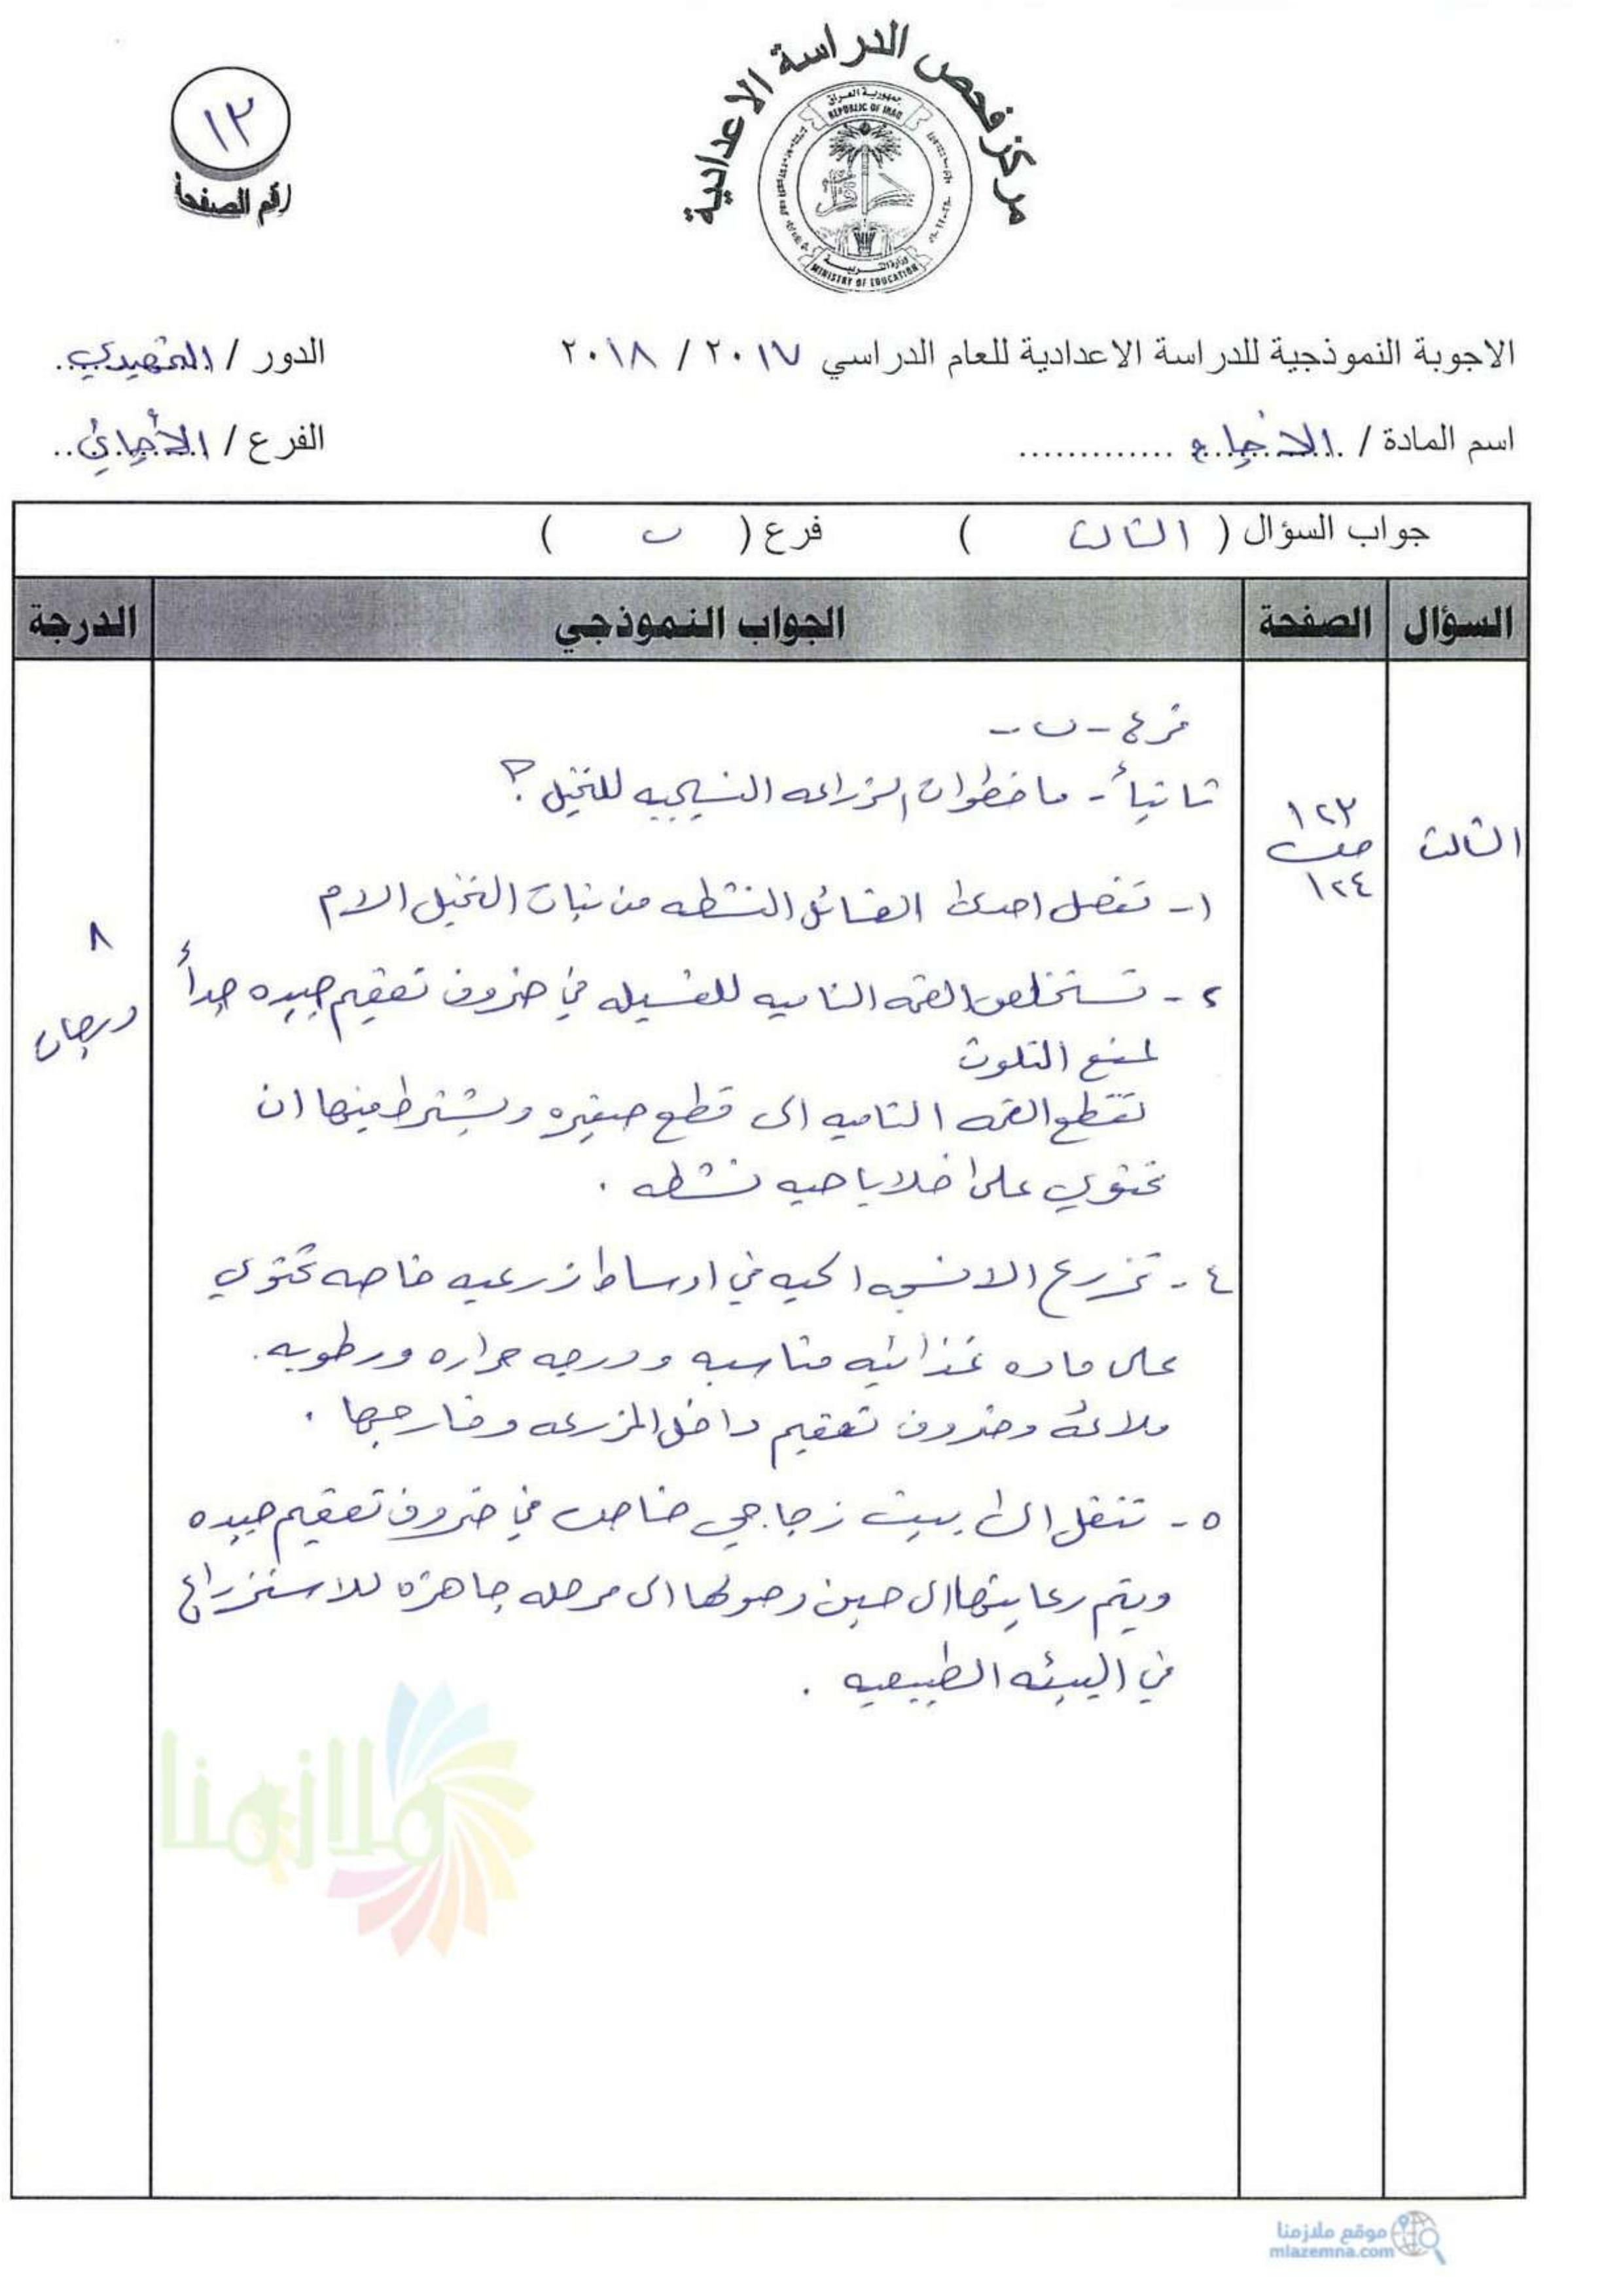 مركز فحص الدراسة الاعدادية
جمهورية العراق
REPUBLIC OF IRAQ
وزارة التربية
MINISTRY OF EDUCATION
١٣
رقم الصفحة
الاجوبة النموذجية للدراسة الاعدادية للعام الدراسي ٢٠١٧ / ٢٠١٨
الدور / التمهيدي
اسم المادة / الاحياء
الفرع / الأحيائي
جواب السؤال ( الثالث ) فرع ( ب )
السؤال الصفحة الجواب النموذجي الدرجة
فرع - ب -
ثانياً - ما خطوات الزراعه النسيجيه للنخيل ؟
الثالث
١٢٣
١٢٤
٨
درجات
١- تفصل احدى الفسائل النشطه من نبات النخيل الام
٢- تستخلص القمه الناميه للفسيله في ضروف تعقيم جيده جداً
لمنع التلوث
تقطع القمه الناميه الى قطع صغيره ويشترط فيها ان
تحتوي على خلايا حيه نشطه .
٤- تزرع الانسجه الحيه في اوساط زرعيه خاصه تحتوي
على ماده غذائيه مناسبه ودرجه حراره ورطوبه .
ملائمه وضروف تعقيم داخل المزرعه وخارجها .
٥- تنقل الى بيت زجاجي خاص في ضروف تعقيم جيده
ويتم رعايتها الى حين وصولها الى مرحله جاهزه للاستزراع
في البيئه الطبيعيه .
ملازمنا
موقع ملازمنا
mlazemna.com